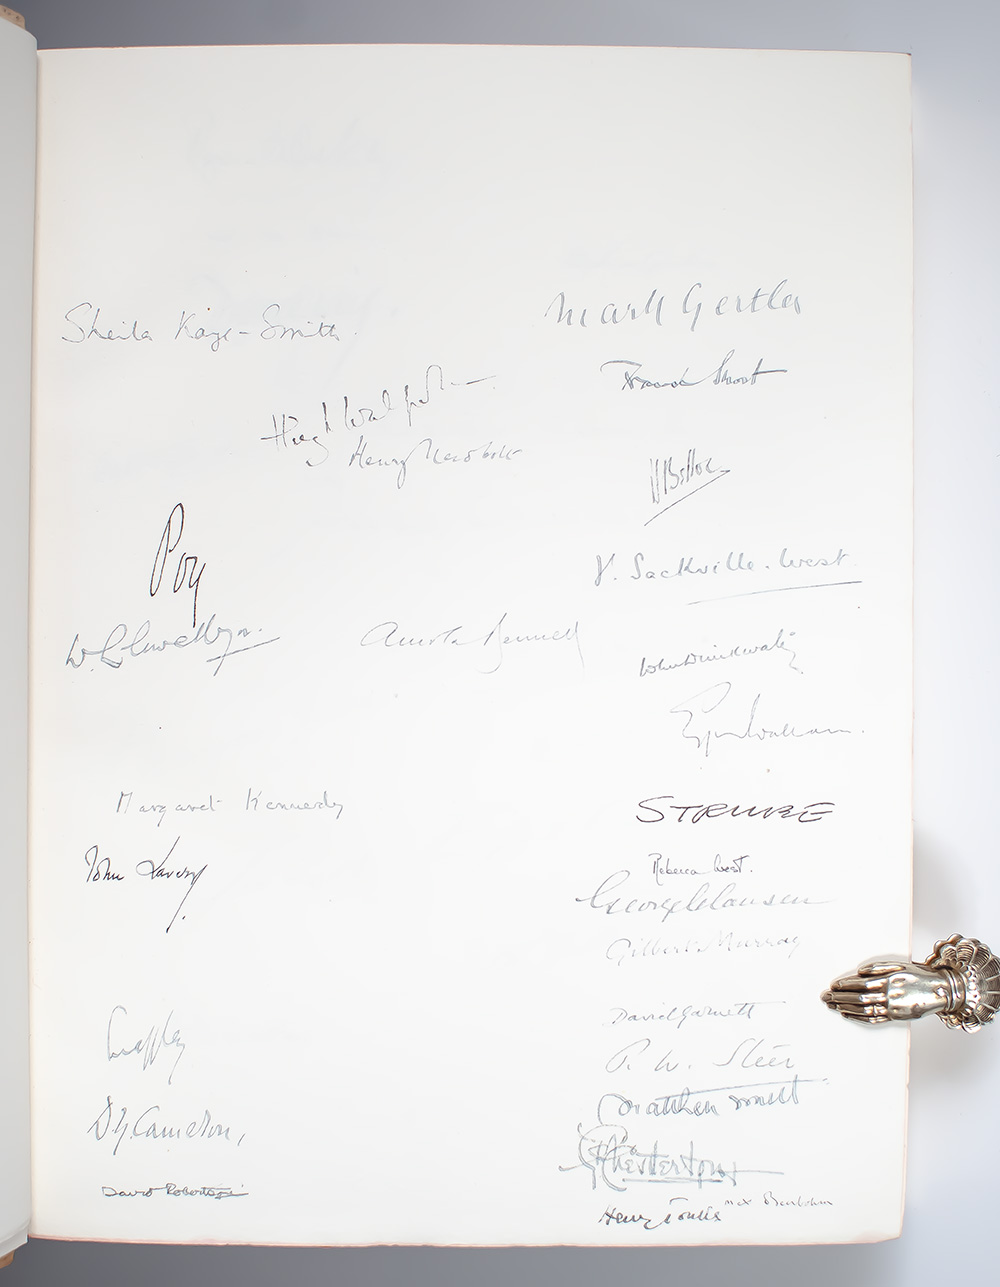 Sheila Kaye-Smith.
Mark Gertler
Hugh Walpole
Henry Newbolt
Poy
V. Sackville-West
W. Llewellyn.
Arnold Bennett
John Drinkwater
Margaret Kennedy
STRUBE
John Lavery
Rebecca West.
George Clausen
Gilbert Murray
David Garnett
P. W. Steer
Matthew Smith
D.Y. Cameron,
G.K. Chesterton
David Robertson
Max Beerbohm
Henry Tonks